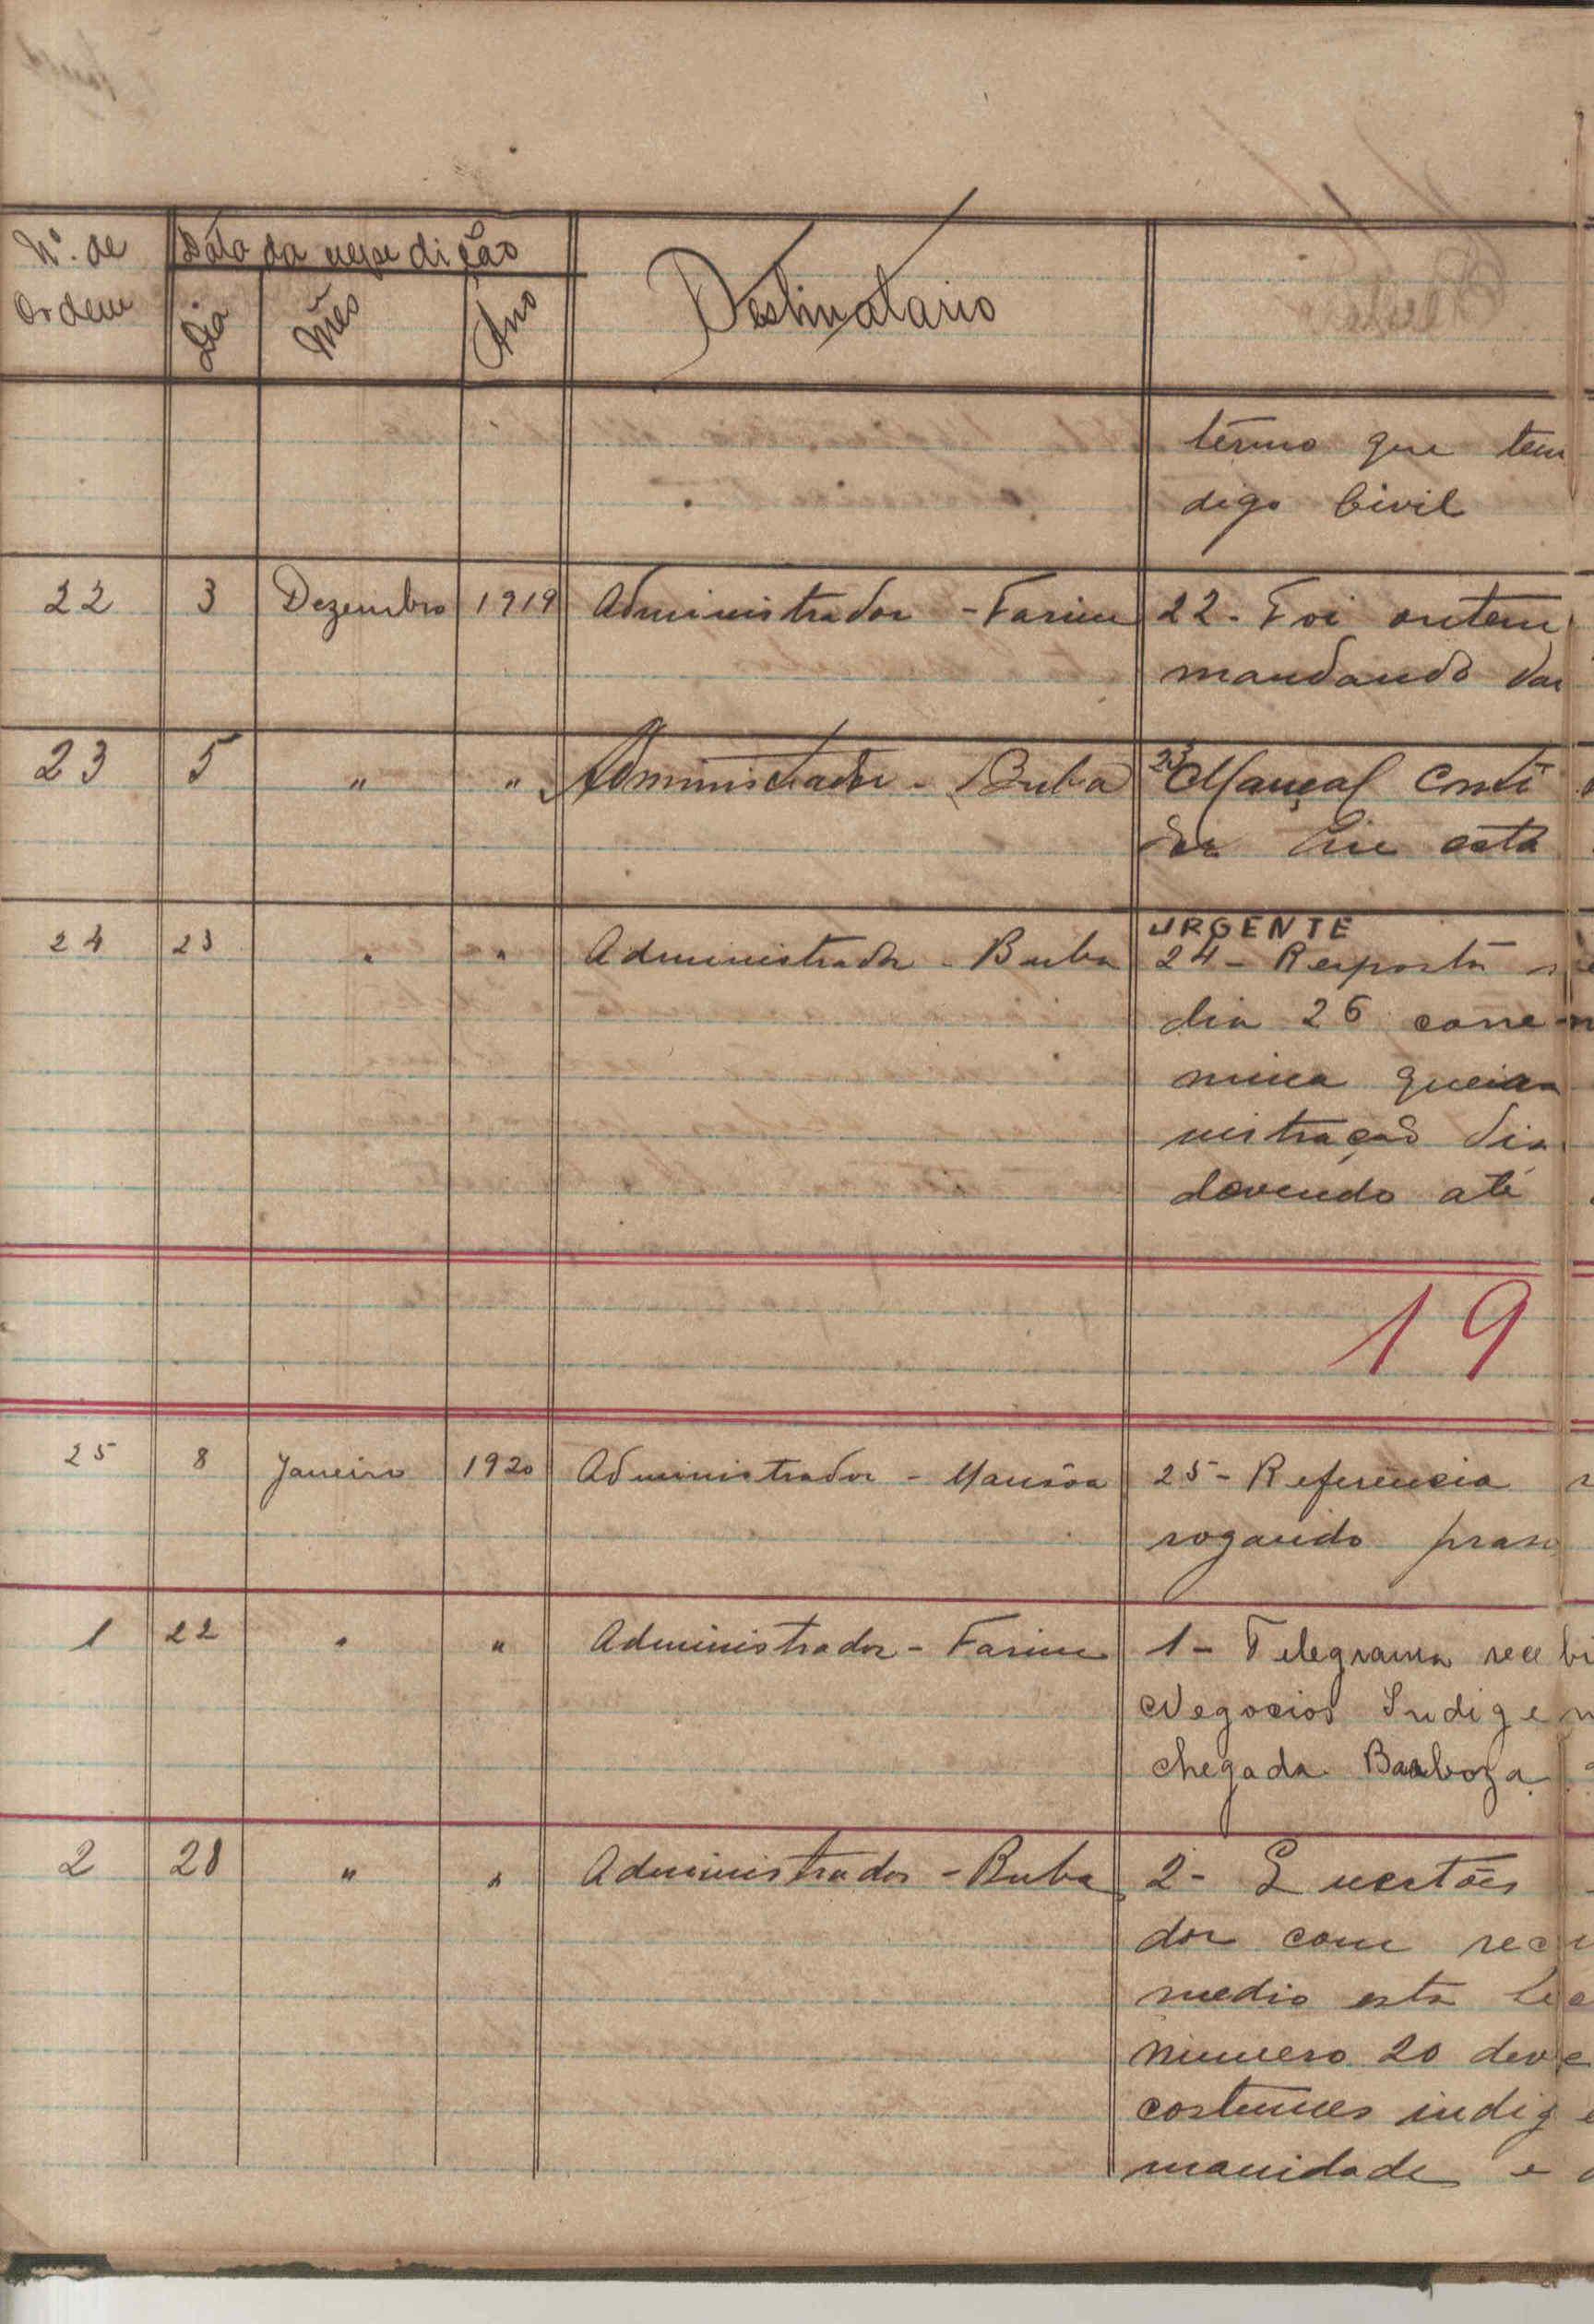 Nº. de Data da expedição Destinatario
Ordem Dia Mês Ano
têrmo que tem
digo Civil
22 3 Dezembro 1919 Administrador - Farim 22 - Foi ontem
mandando
23 5 " " Administrador - Buba 23
está
URGENTE
24 23 " " Administrador - Buba 24 - Resposta
dia 26 corre
queira
nistração
devendo até
19
25 8 Janeiro 1920 Administrador - Mansôa 25 - Referência
rogando praso
1 22 " " Administrador - Farim 1 - Telegrama recebi
Negocios Indigen
chegada Barboza
2 28 " " Administrador - Buba 2 - Questões
dor com rec
medio esta
numero 20 deve
costumes indige
manidade e